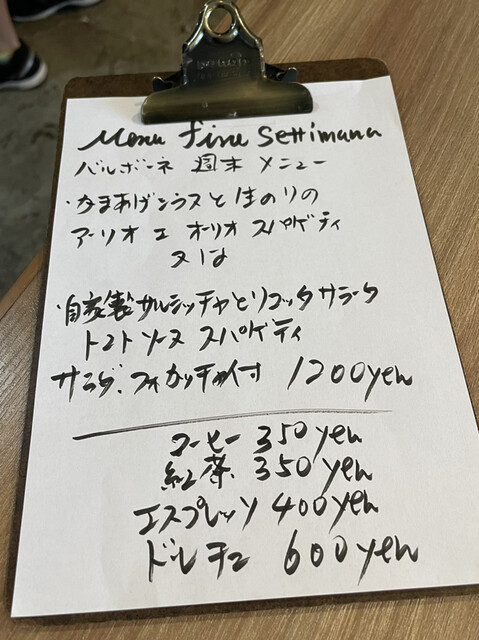 Menu fine Settimana
バルボーネ 週末 メニュー
・なまあげシラスと生のりの
アーリオ エ オーリオ スパゲティ
又は
・自家製サルシッチャとリコッタサラータ
トマトソース スパゲティ
サラダ、フォカッチャ付 1200yen
コーヒー 350yen
紅茶 350yen
エスプレッソ 400yen
ドルチェ 600yen